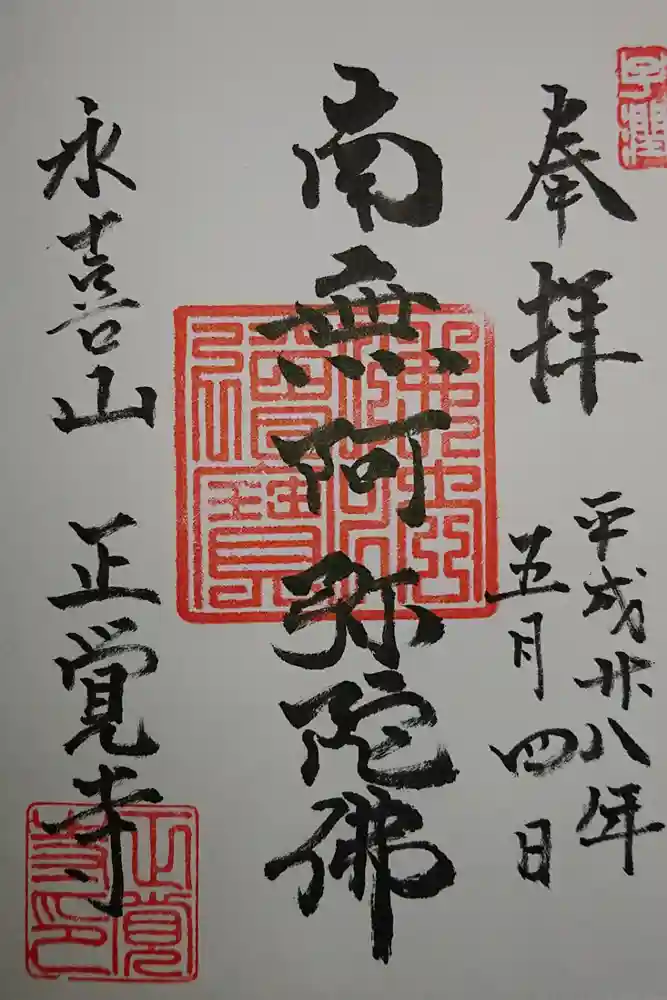 奉拝
平成廿八年
五月四日
南無阿弥陀佛
永喜山 正覚寺
正覚寺印